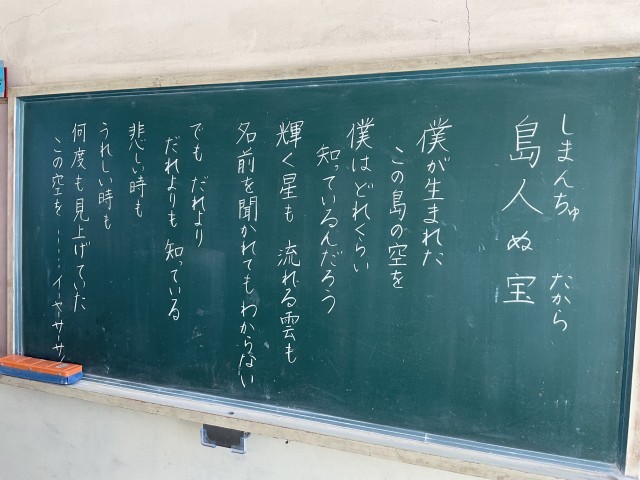 しまんちゅ　たから
島人ぬ宝
僕が生まれた
この島の空を
僕はどれくらい
知っているんだろう
輝く星も　流れる雲も
名前を聞かれても　わからない
でも　だれより
だれよりも　知っている
悲しい時も
うれしい時も
何度も見上げていた
この空を……イーヤーサーサ